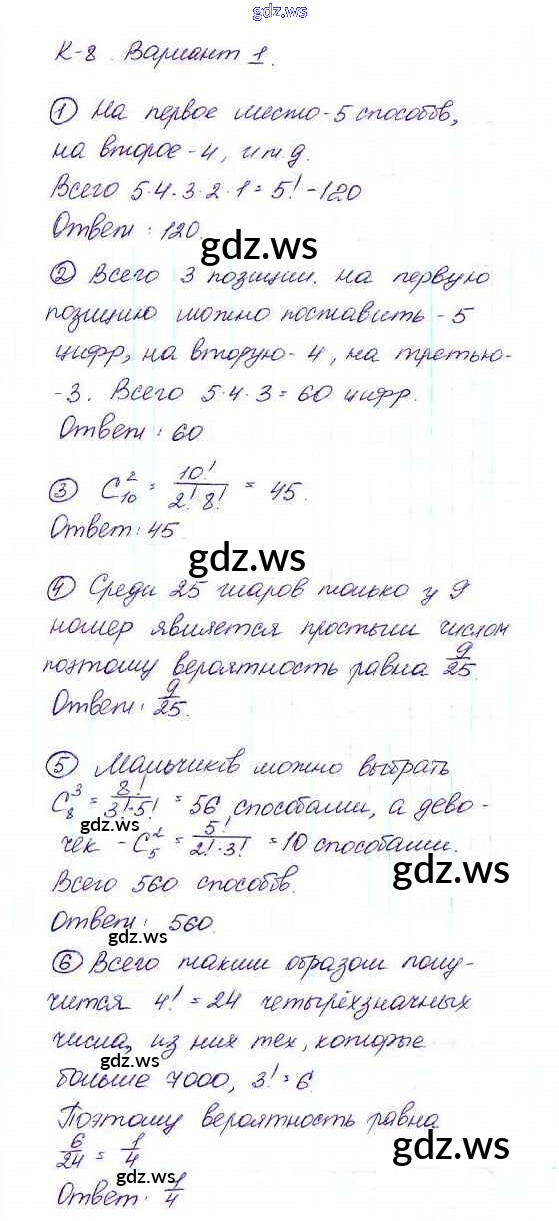 gdz.ws
К-8. Вариант 1.
① На первое место - 5 способов,
на второе - 4, и т.д.
Всего 5·4·3·2·1 = 5! - 120
Ответ: 120.
gdz.ws
② Всего 3 позиции. на первую
позицию можно поставить - 5
цифр, на вторую - 4, на третью -
- 3. Всего 5·4·3 = 60 цифр.
Ответ: 60
③ C²₁₀ = 10!/(2!·8!) = 45.
Ответ: 45
gdz.ws
④ Среди 25 шаров только у 9
номер является простым числом
поэтому вероятность равна 9/25.
Ответ: 9/25.
⑤ Мальчиков можно выбрать
C³₈ = 8!/(3!·5!) = 56 способами, а дево-
gdz.ws
чек - C²₅ = 5!/(2!·3!) = 10 способами.
gdz.ws
Всего 560 способов.
Ответ: 560.
gdz.ws
⑥ Всего таким образом полу-
чится 4! = 24 четырёхзначных
числа, из них тех, которые
gdz.ws
больше 7000, 3! = 6.
Поэтому вероятность равна
6/24 = 1/4
gdz.ws
gdz.ws
Ответ: 1/4